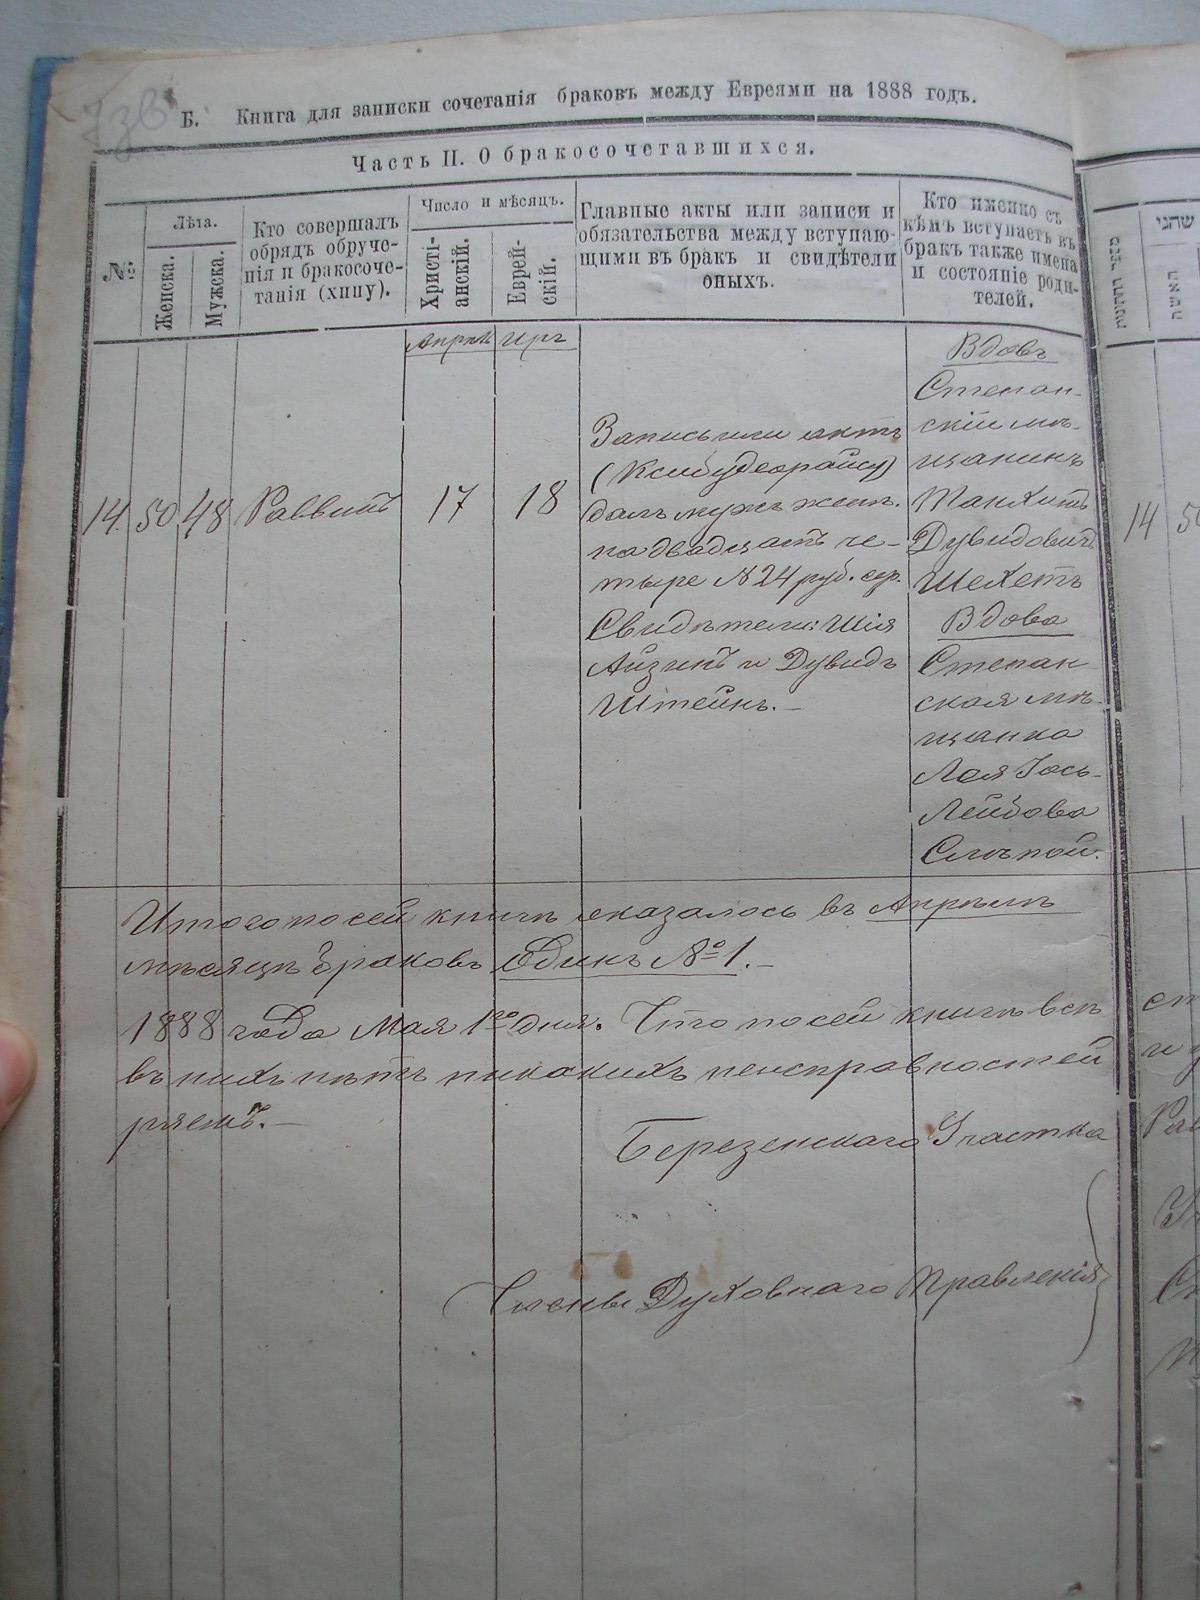 Б. Книга для записки сочетанія браковъ между Евреями на 1888 годъ.
Часть II. О бракосочетавшихся.
№
Лѣта.
Женска.
Мужска.
Кто совершалъ
обрядъ обруче-
нія и бракосоче-
танія (хипу).
Число и мѣсяцъ.
Христі-
анскій.
Еврей-
скій.
Главные акты или записи и
обязательства между вступаю-
щими въ бракъ и свидѣтели
оныхъ.
Кто именно съ
кѣмъ вступаетъ въ
бракъ также имена
и состояніе роди-
телей.
14. 50 48 Раввинъ
17
18
Запись или актъ
далъ мужъ женѣ.
на двадцать че-
тыре № 24 руб. сер.
Свидѣтели: Шія
Айзинъ и Дувидъ
Штейнъ.–
Вдовъ
Степан-
скій мѣ-
щанинъ
Танхимъ
Дувидовичъ
Шехетъ
Вдова
Степан-
ская мѣ-
щанка
Лея Іось-
Лейбова
Слѣпой.
Итого по сей книгѣ оказалось въ Апрѣлѣ
мѣсяцѣ браковъ Одинъ № 1.–
1888 года Мая 1го дня. Что по сей книгѣ всѣ
въ нихъ нѣтъ никакихъ неисправностей
ряемъ.–
Березенскаго Участка
Члены Духовнаго Правленія
14 50